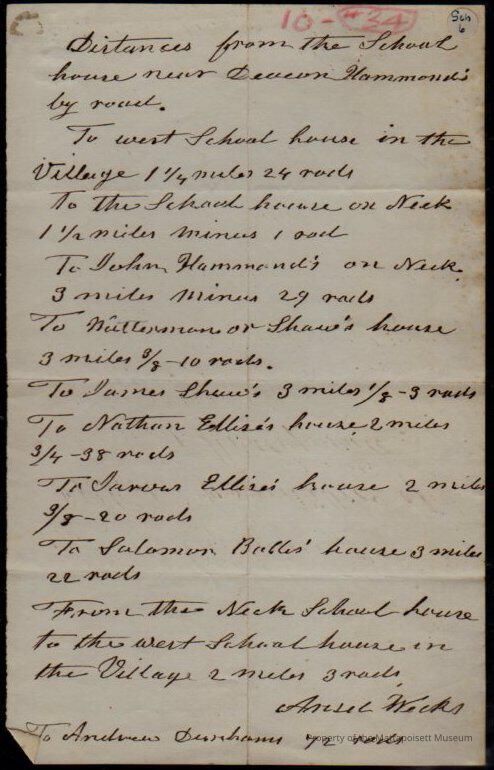 10-34
Sch
6
Distances from the School
house near Deacon Hammond's
by road.
To west School house in the
Village 1 1/4 miles 24 rods
To the School house on Neck
1 1/2 miles minus 1 rod
To John Hammond's on Neck
3 miles minus 29 rods
To or Shaw's house
3 miles 3/8-10 rods.
To James Shaw's 3 miles 1/8-3 rods
To Nathan Ellis's house 2 miles
3/4-38 rods
To Ellis's house 2 miles
3/8-20 rods
To Solomon house 3 miles
22 rods
From the Neck School house
to the west School house in
the Village 2 miles 3 rods
Ansel Weeks
To Andrew Dunhams 42 rods
Property of the Mattapoisett Museum